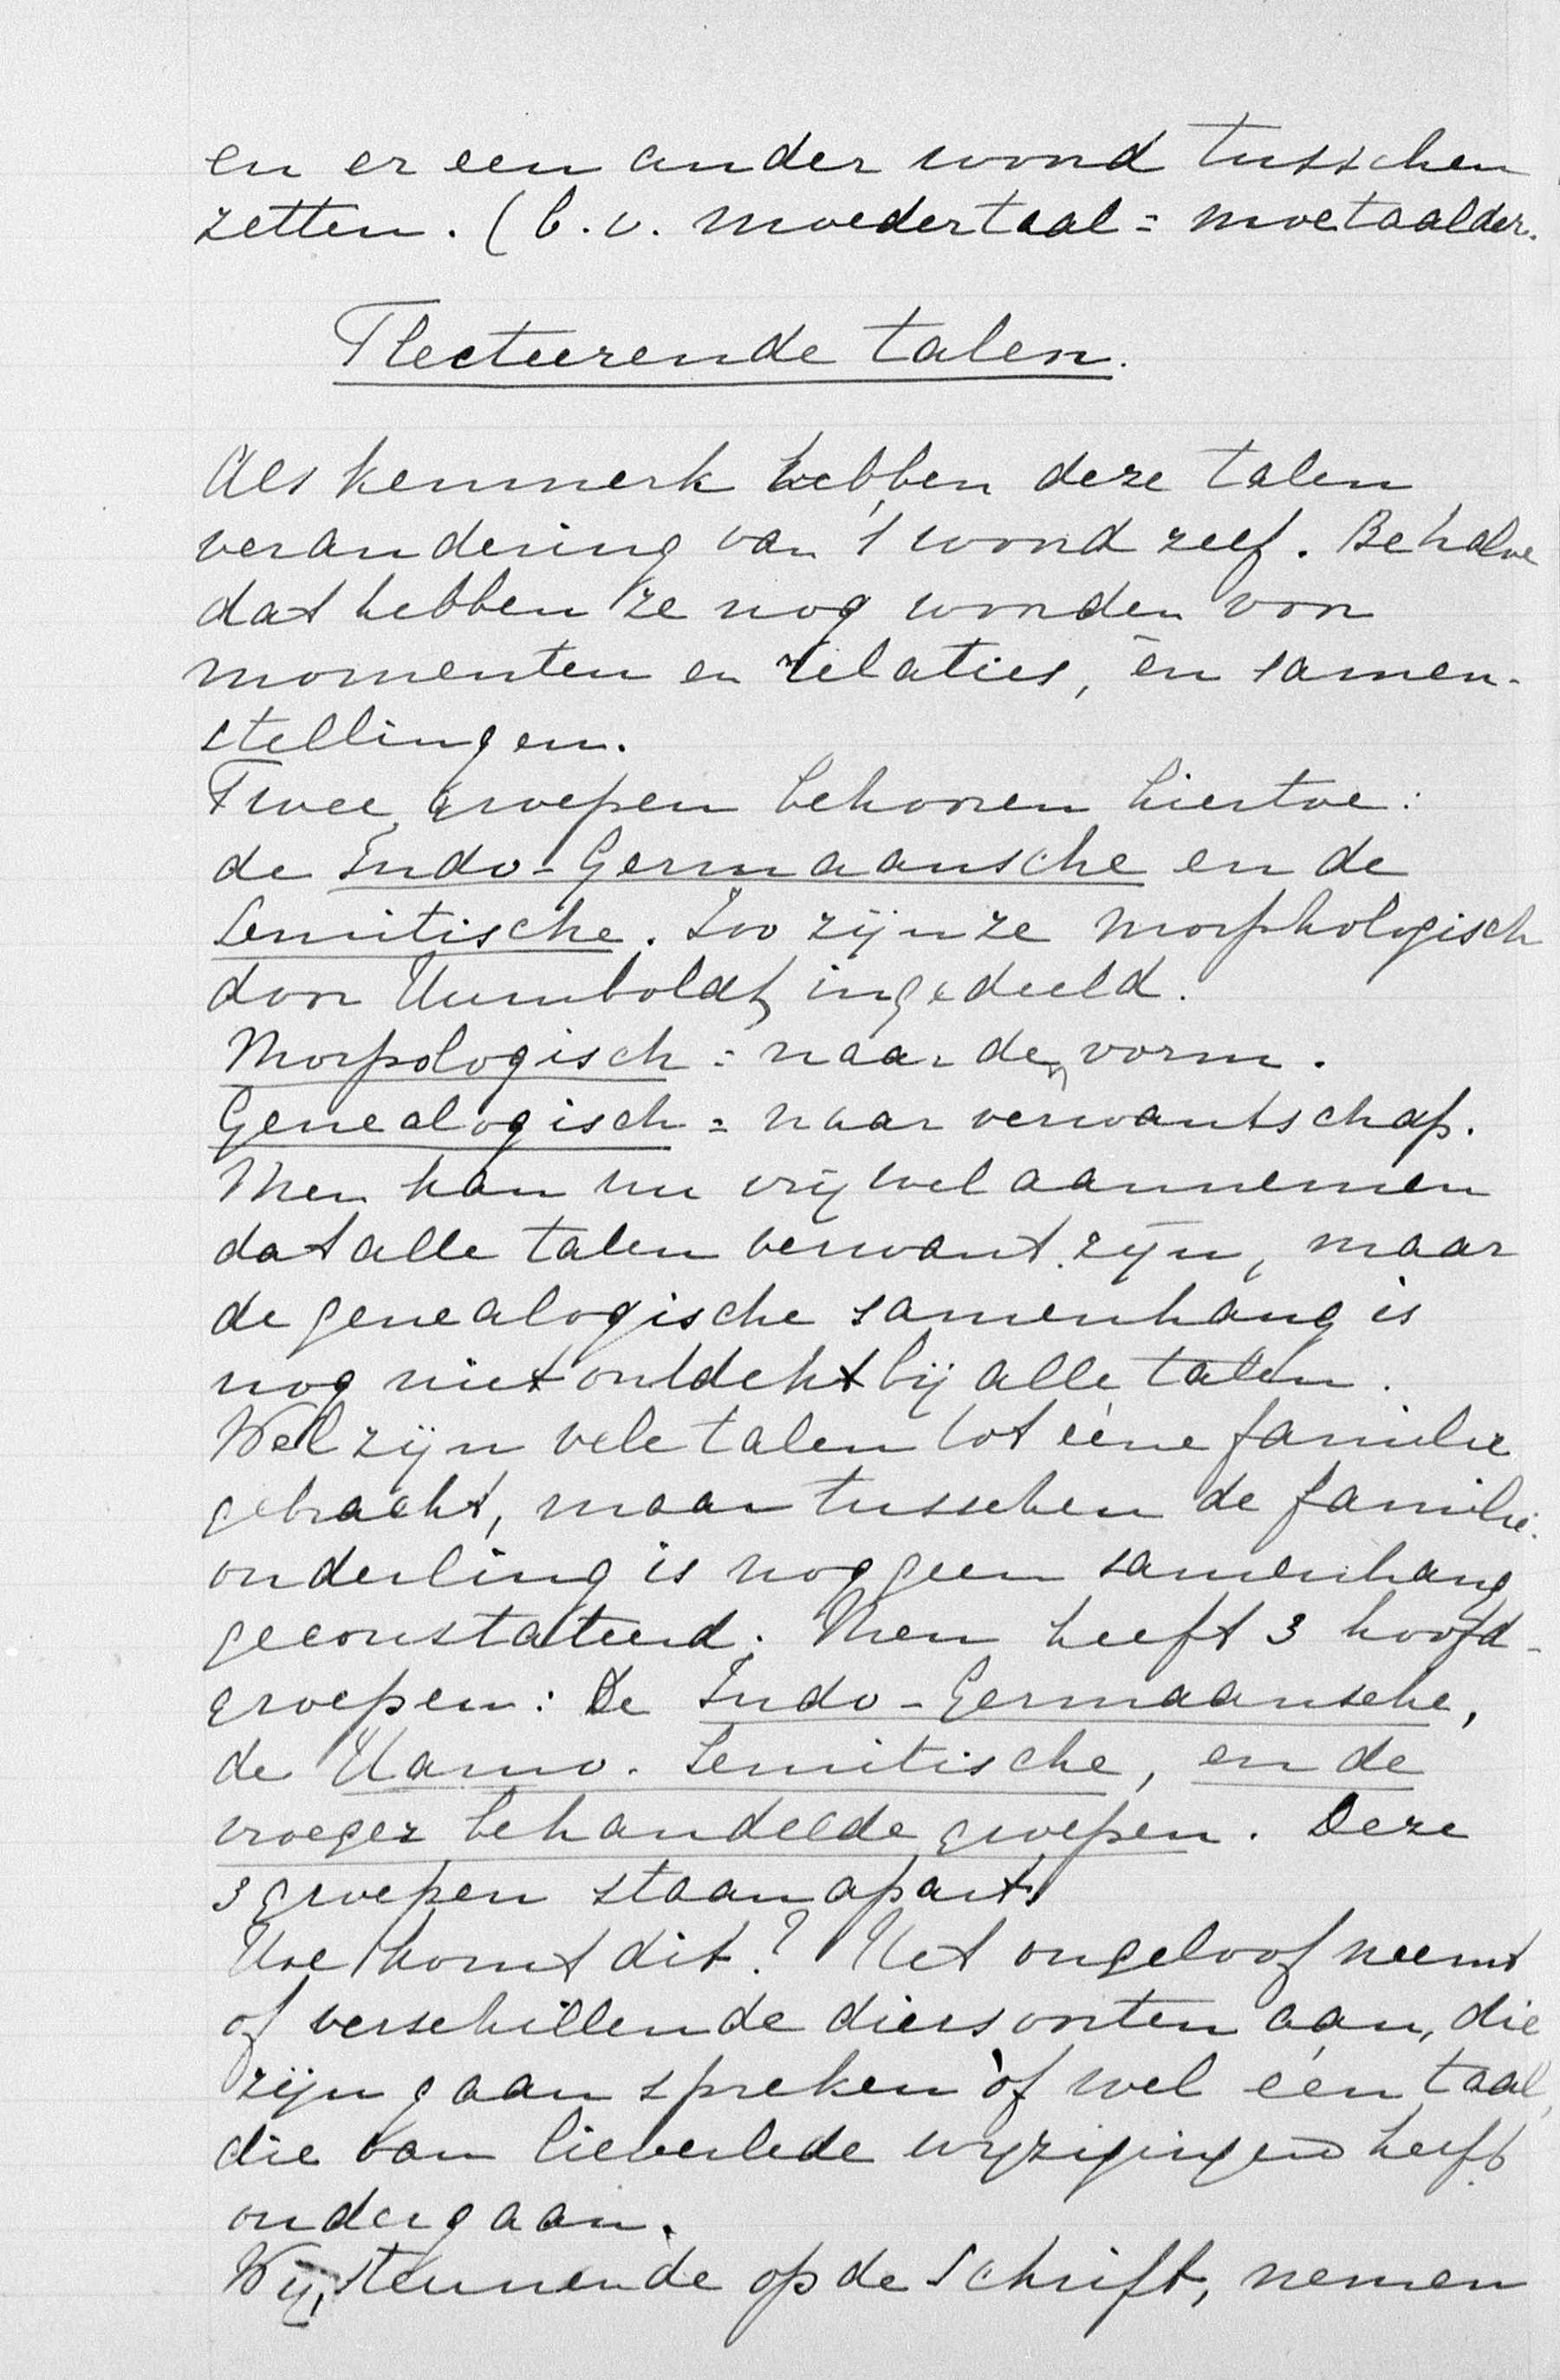 en er een ander woord tusschen
zetten. (b.v. moedertaal = moetaalder.
Flecteerende talen.
Als kenmerk hebben deze talen
verandering van 't woord zelf. Behalve
dat hebben ze nog woorden voor
momenten en relaties, én samen-
stellingen.
Twee groepen behooren hiertoe:
de Indo-Germaansche en de
Semitische. Zoo zijn ze morphologisch
door Humboldt ingedeeld.
Morpologisch = naar den vorm.
Genealogisch = naar verwantschap.
Men kan nu vrij wel aannemen
dat alle talen verwant zijn, maar
de genealogische samenhang is
nog niet ontdekt bij alle talen.
Wel zijn vele talen tot ééne familie
gebracht, maar tusschen de familie.
onderling is nog geen samenhang
geconstateerd. Men heeft 3 hoofd-
groepen: De Indo-Germaansche,
de Hamo-Semitische, en de
vroeger behandelde groepen. Deze
3 groepen staan apart.
Hoe komt dit? Het ongeloof neemt
of verschillende diersoorten aan, die
zijn gaan spreken òf wel één taal,
die van lieverlede wijzigingen heeft
ondergaan.
Wij, steunende op de Schrift, nemen